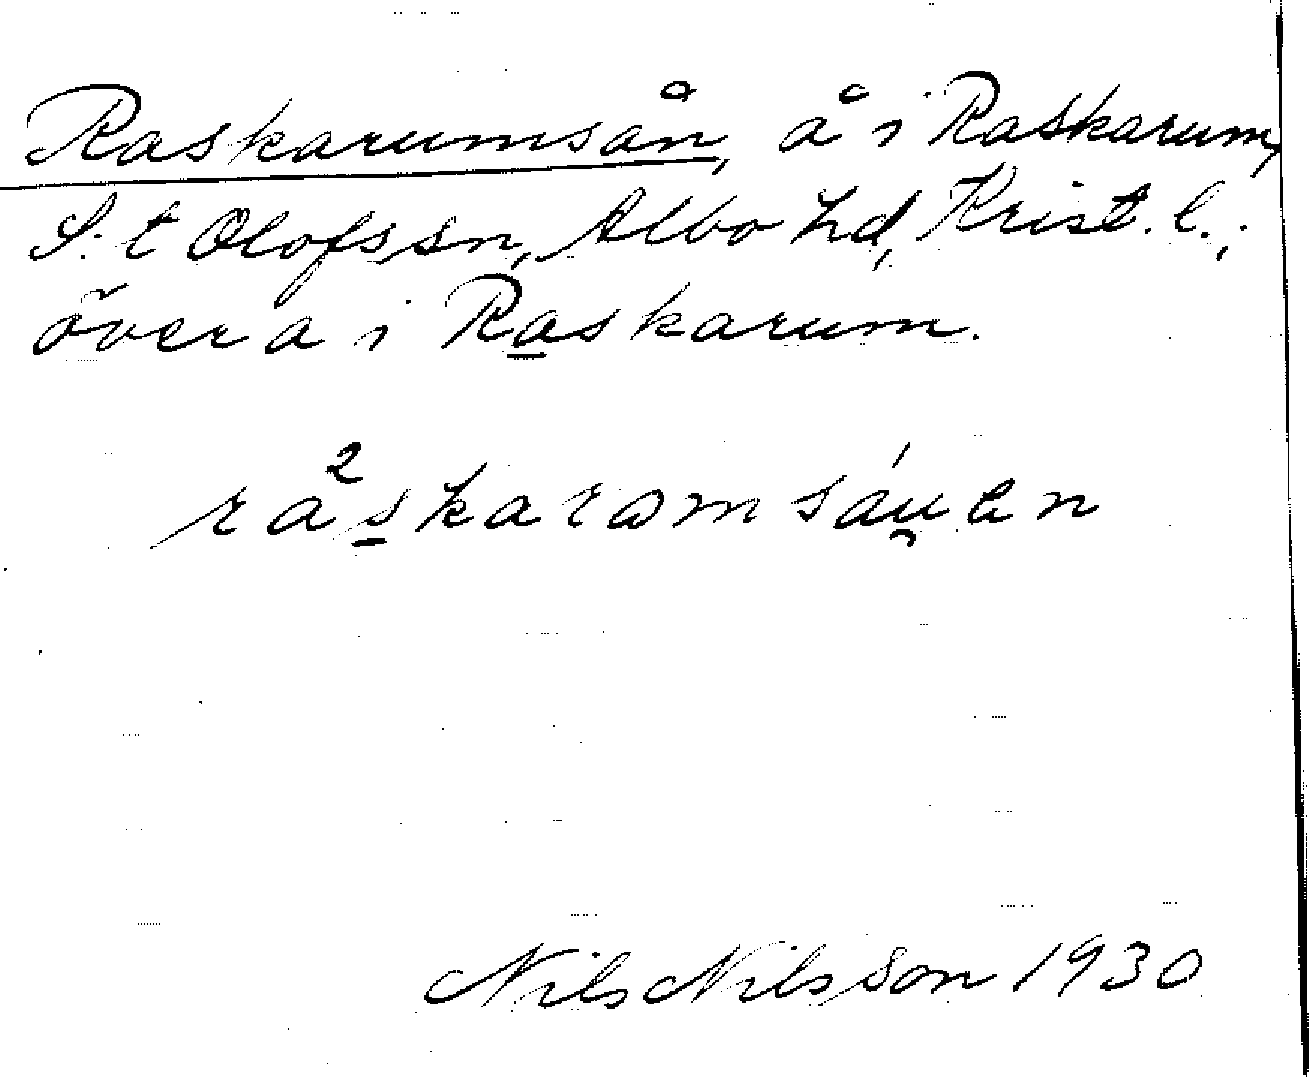 Raskarumsån, å i Raskarum,
S:t Olofs sn, Albo hd, Krist. l.;
över a i Raskarum.
ra²skaromsáu̯en
Nils Nilsson 1930